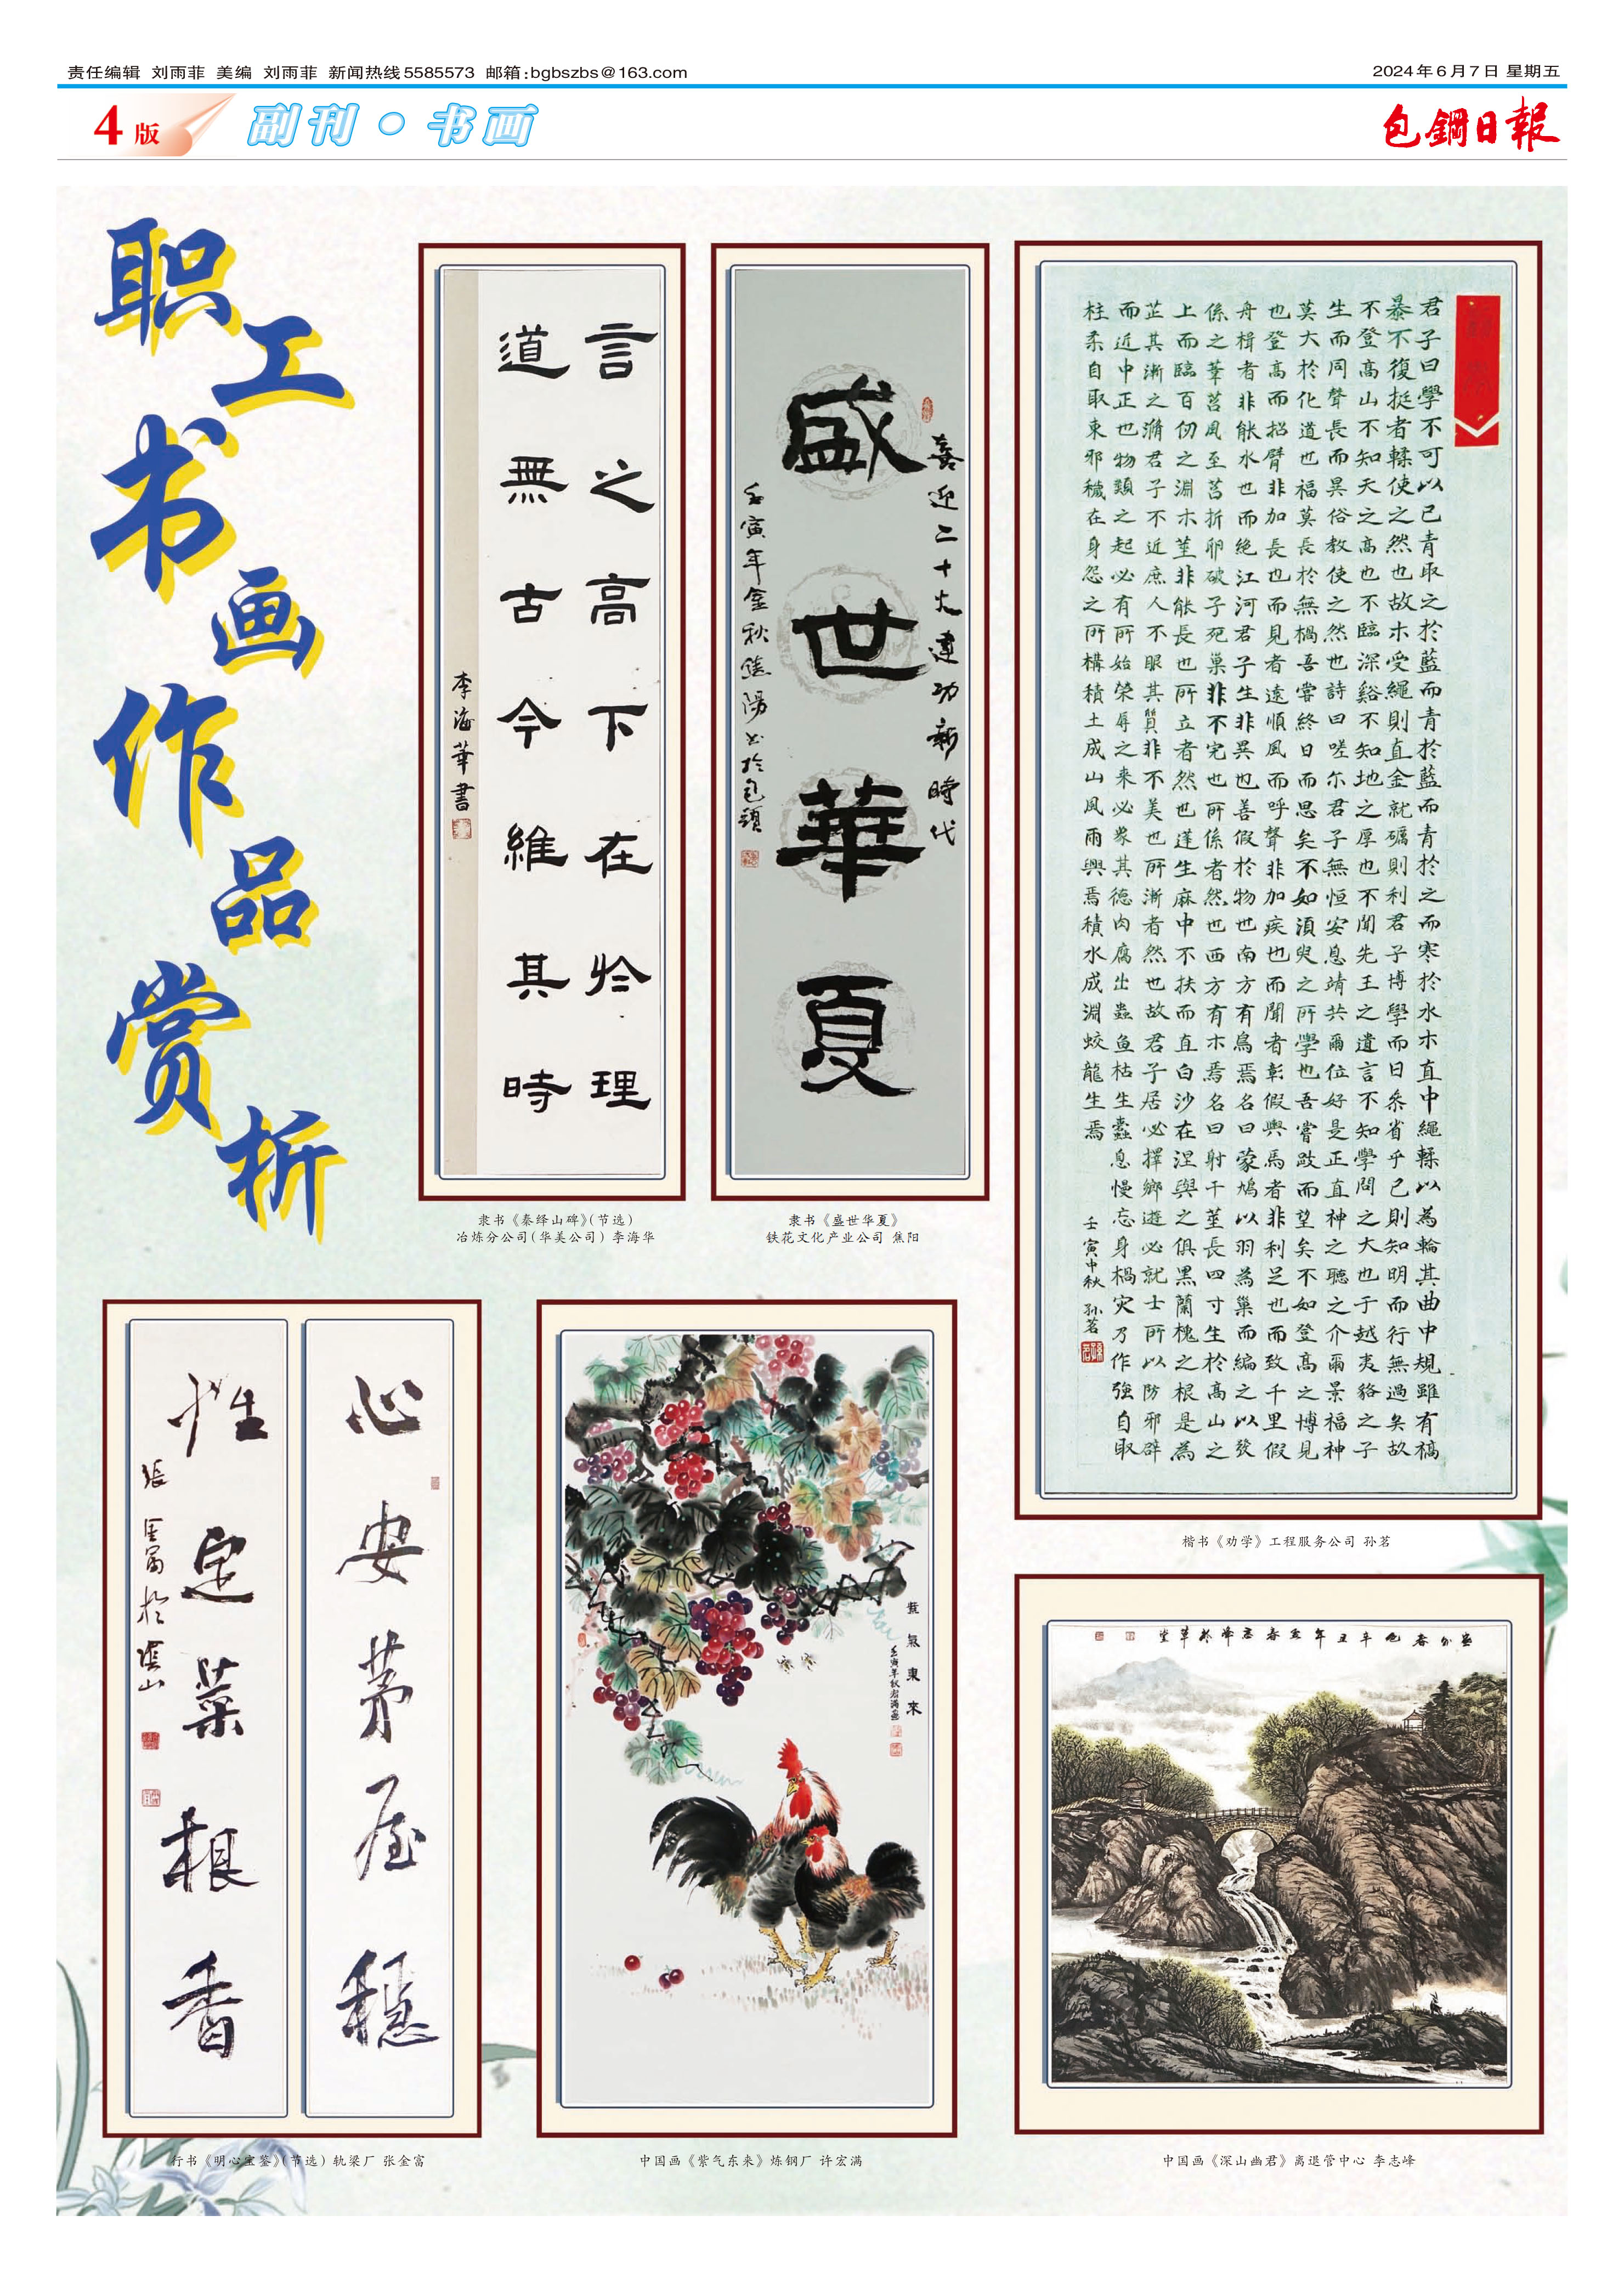 责任编辑 刘雨菲 美编 刘雨菲 新闻热线5585573 邮箱:bgbszbs@163.com
2024年6月7日 星期五
4版
副刊○书画
包鋼日報
职工书画作品赏折
言之高下在於理
道無古今維其時
李海華書
隶书《秦绎山碑》(节选)
冶炼分公司(华美公司) 李海华
喜迎二十大建功新時代
盛世華夏
壬寅年金秋焦陽书於包頭
隶书《盛世华夏》
铁花文化产业公司 焦阳
君子曰學不可以已青取之於藍而青於藍而青於之而寒於水木直中繩輮以為輪其曲中規雖有槁
暴不復挺者輮使之然也故木受繩則直金就礪則利君子博學而日參省乎己則知明而行無過矣故
不登高山不知天之高也不臨深谿不知地之厚也不聞先王之遺言不知學問之大也于越夷貉之子
生而同聲長而異俗教使之然也詩曰嗟尔君子無恒安息靖共爾位好是正直神之聽之介爾景福神
莫大於化道也福莫長於無禍吾嘗終日而思矣不如須臾之所學也吾嘗跂而望矣不如登高之博見
也登高而招臂非加長也而見者遠順風而呼聲非加疾也而聞者彰假輿馬者非利足也而致千里假
舟楫者非能水也而絶江河君子生非異也善假於物也南方有鳥焉名曰蒙鳩以羽為巢而編之以發
係之葦苕風至苕折卵破子死巢非不完也所係者然也西方有木焉名曰射干莖長四寸生於高山之
上而臨百仞之淵木莖非能長也所立者然也蓬生麻中不扶而直白沙在涅與之俱黑蘭槐之根是為
芷其漸之滫君子不近庶人不服其質非不美也所漸者然也故君子居必擇鄉遊必就士所以防邪辟
而近中正也物類之起必有所始榮辱之来必象其德肉腐出蟲鱼枯生蠹怠慢忘身禍灾乃作強自取
柱柔自取束邪穢在身怨之所構積土成山風雨興焉積水成淵蛟龍生焉
壬寅中秋 孙茗
楷书《劝学》工程服务公司 孙茗
心安茅屋稳
性定菜根香
張金富於
行书《明心宝鉴》(节选) 轨梁厂 张金富
紫氣東来
壬寅年秋宏满画
中国画《紫气东来》炼钢厂 许宏满
中国画《深山幽君》离退管中心 李志峰